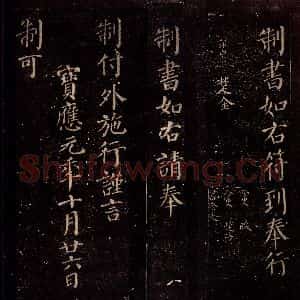 制書如右符到奉行
楚金
制書如右請奉
制付外施行謹言
寶應元年十月廿六日
制可
Shufawang.cn